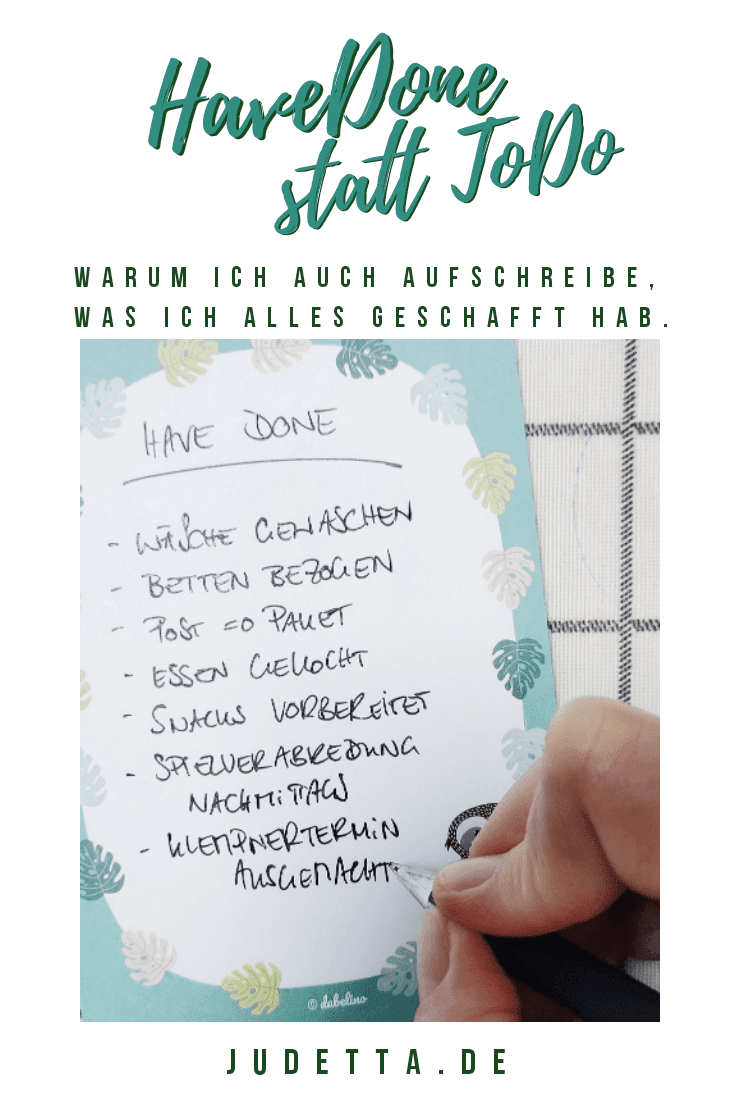 HaveDone
statt ToDo
WARUM ICH AUCH AUFSCHREIBE,
WAS ICH ALLES GESCHAFFT HAB.
HAVE DONE
- WÄSCHE GEWASCHEN
- BETTEN BEZOGEN
- POST => PAKET
- ESSEN GEKOCHT
- SNACKS VORBEREITET
- SPIELVERABREDUNG
NACHMITTAGS
- KLEMPNERTERMIN
AUSGEMACHT
© dabelino
JUDETTA.DE